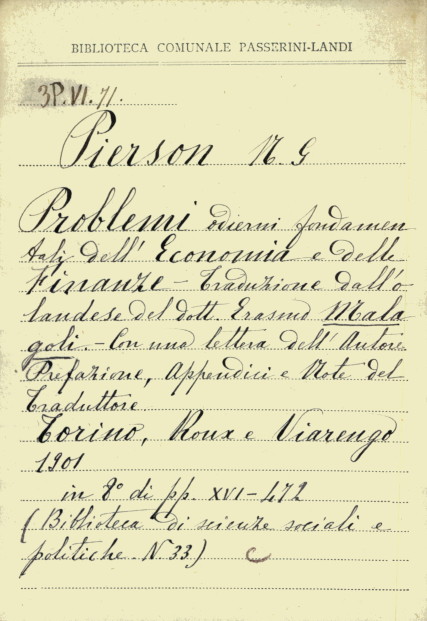 BIBLIOTECA COMUNALE PASSERINI-LANDI
3P.VI.71.
Pierson N. G
Problemi odierni fondamen
tali dell' Economia e delle
Finanze - Traduzione dall'o-
landese del dott. Erasmo Mala
goli. - Con una lettera dell' Autore.
Prefazione, Appendici e Note del
Traduttore.
Torino, Roux e Viarengo
1901
in 8° di pp. XVI-472
(Biblioteca di scienze sociali e
politiche. N. 33)